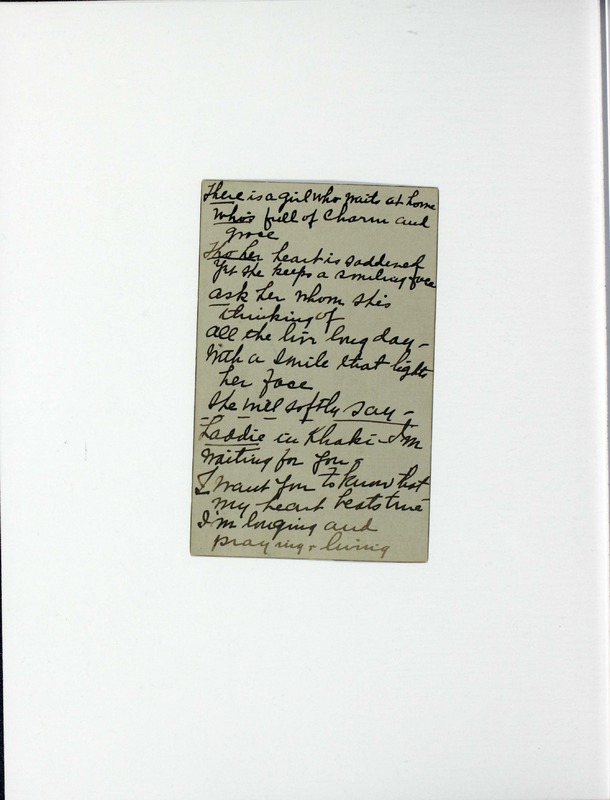 There is a girl who waits at home
who's full of Charm and
grace
Tho her heart is saddened
Yet she keeps a smiling face
ask her whom she's
thinking of
all the livelong day -
With a smile that lights
her face
She will softly say -
"Laddie in Khaki - I'm
waiting for you
I want you to know that
my heart beats true
I'm longing and
praying + living